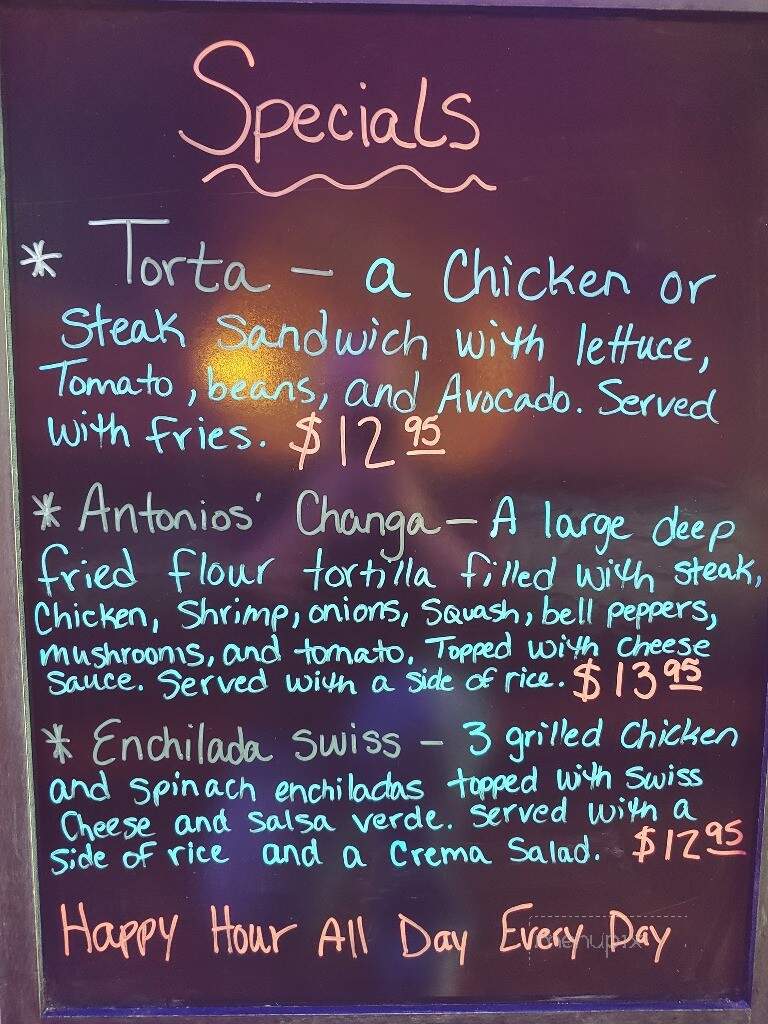 Specials
* Torta - a Chicken or
Steak Sandwich with lettuce,
Tomato, beans, and Avocado. Served
with fries. $12 95
* Antonios' Changa - A large deep
fried flour tortilla filled with steak,
Chicken, Shrimp, onions, Squash, bell peppers,
mushrooms, and tomato. Topped with cheese
sauce. Served with a side of rice. $13 95
* Enchilada Swiss - 3 grilled Chicken
and spinach enchiladas topped with Swiss
Cheese and salsa verde. Served with a
side of rice and a Crema Salad. $12 95
Happy Hour All Day Every Day
menupix